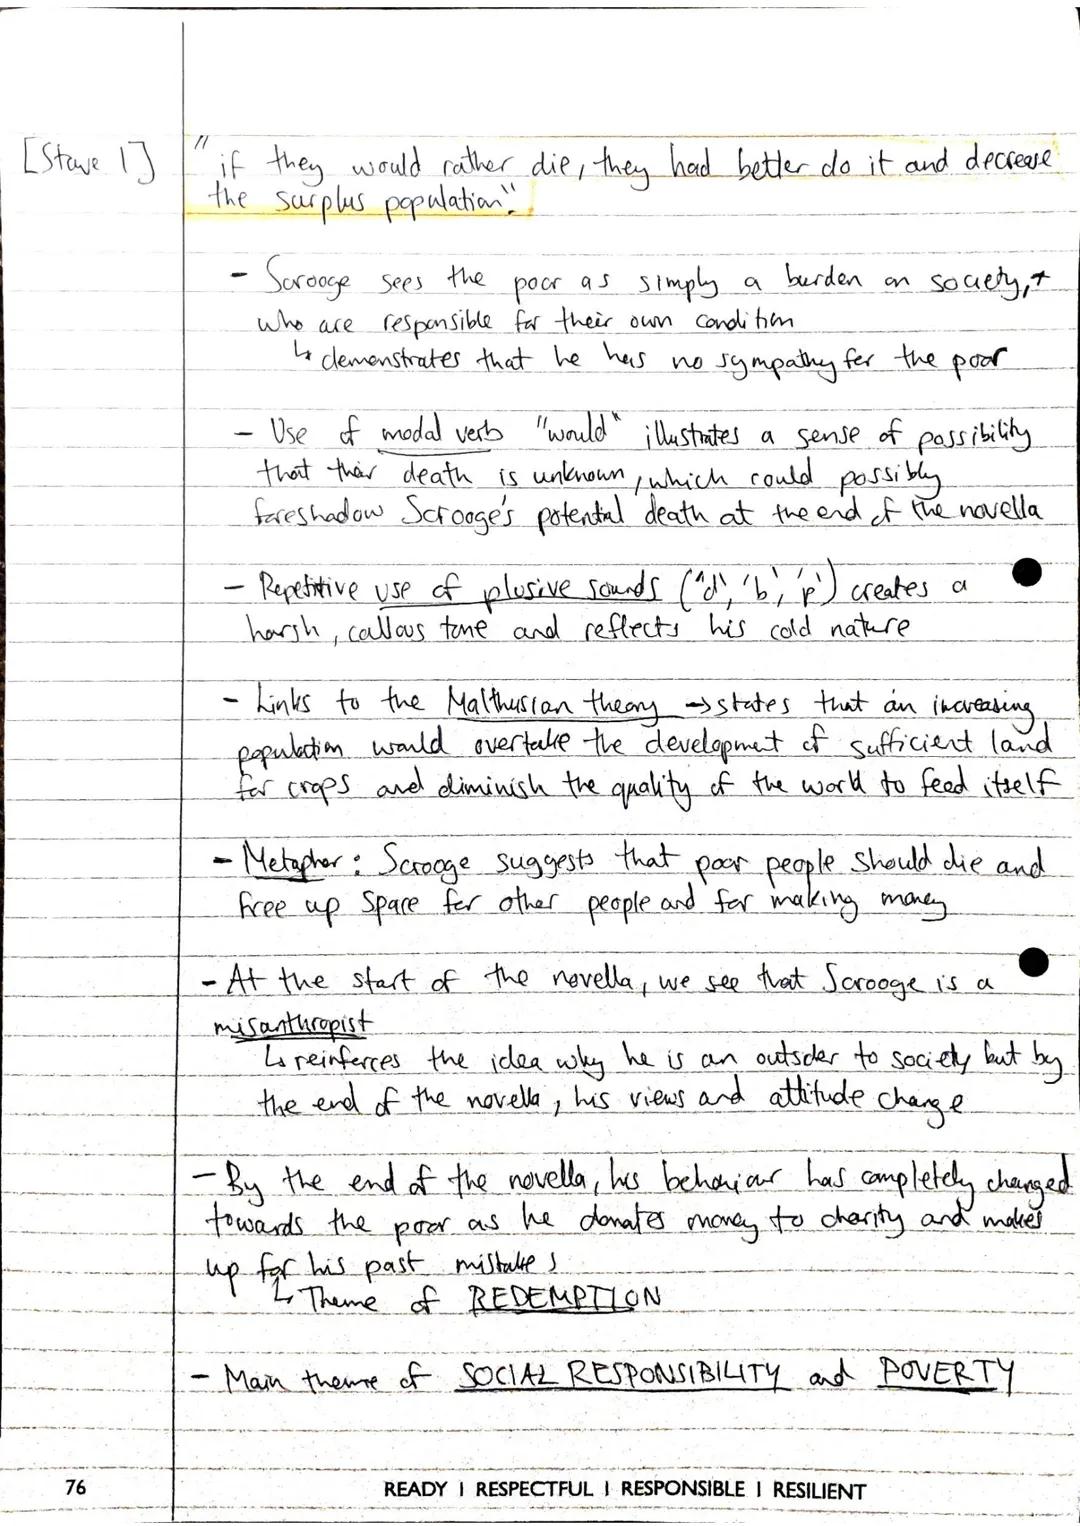 [Stave 1]
"if they would rather die, they had better do it and decrease
the surplus population".
- Scrooge sees the poor as simply a burden on society, +
who are responsible for their own condition
↳ demonstrates that he has no sympathy for the poor
- Use of modal verb "would" illustrates a sense of possibility
that their death is unknown, which could possibly
foreshadow Scrooge's potential death at the end of the novella
- Repetitive use of plosive sounds ('d', 'b', 'p') creates a
harsh, callous tone and reflects his cold nature
- Links to the Malthusian theory → states that an increasing
population would overtake the development of sufficient land
for crops and diminish the quality of the world to feed itself
- Metaphor: Scrooge suggests that poor people should die and
free up space for other people and for making money
- At the start of the novella, we see that Scrooge is a
misanthropist
↳ reinforces the idea why he is an outsider to society but by
the end of the novella, his views and attitude change
- By the end of the novella, his behaviour has completely changed
towards the poor as he donates money to charity and makes
up for his past mistakes
↳ Theme of REDEMPTION
- Main theme of SOCIAL RESPONSIBILITY and POVERTY
76
READY | RESPECTFUL | RESPONSIBLE | RESILIENT